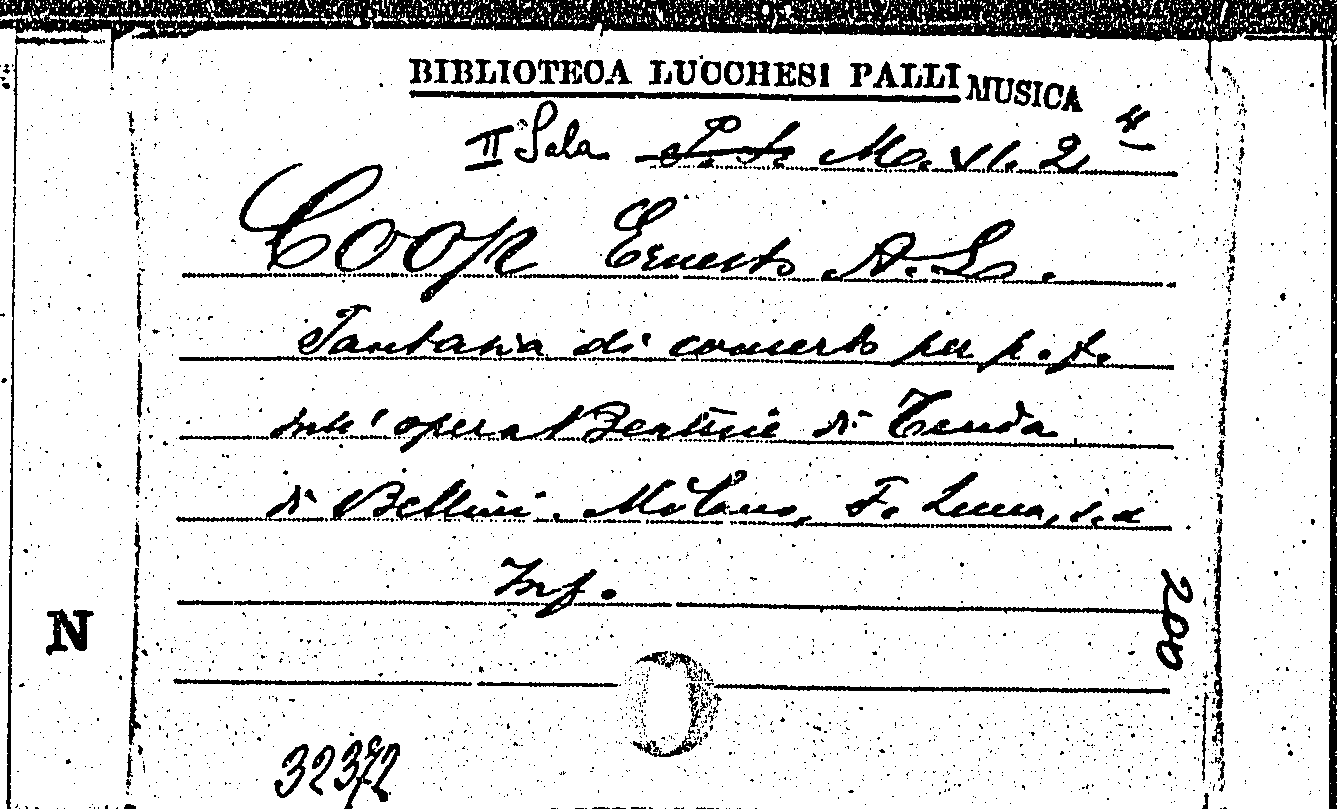 BIBLIOTECA LUCCHESI PALLI MUSICA
II Sala P.S. M. VI. 2 4
Coop Ernesto A. L.
Fantasia di concerto per p. f.
sull'opera Beatrice di Tenda
di Bellini. Milano, F. Lucca, s.d
Inf.
200
N
32372